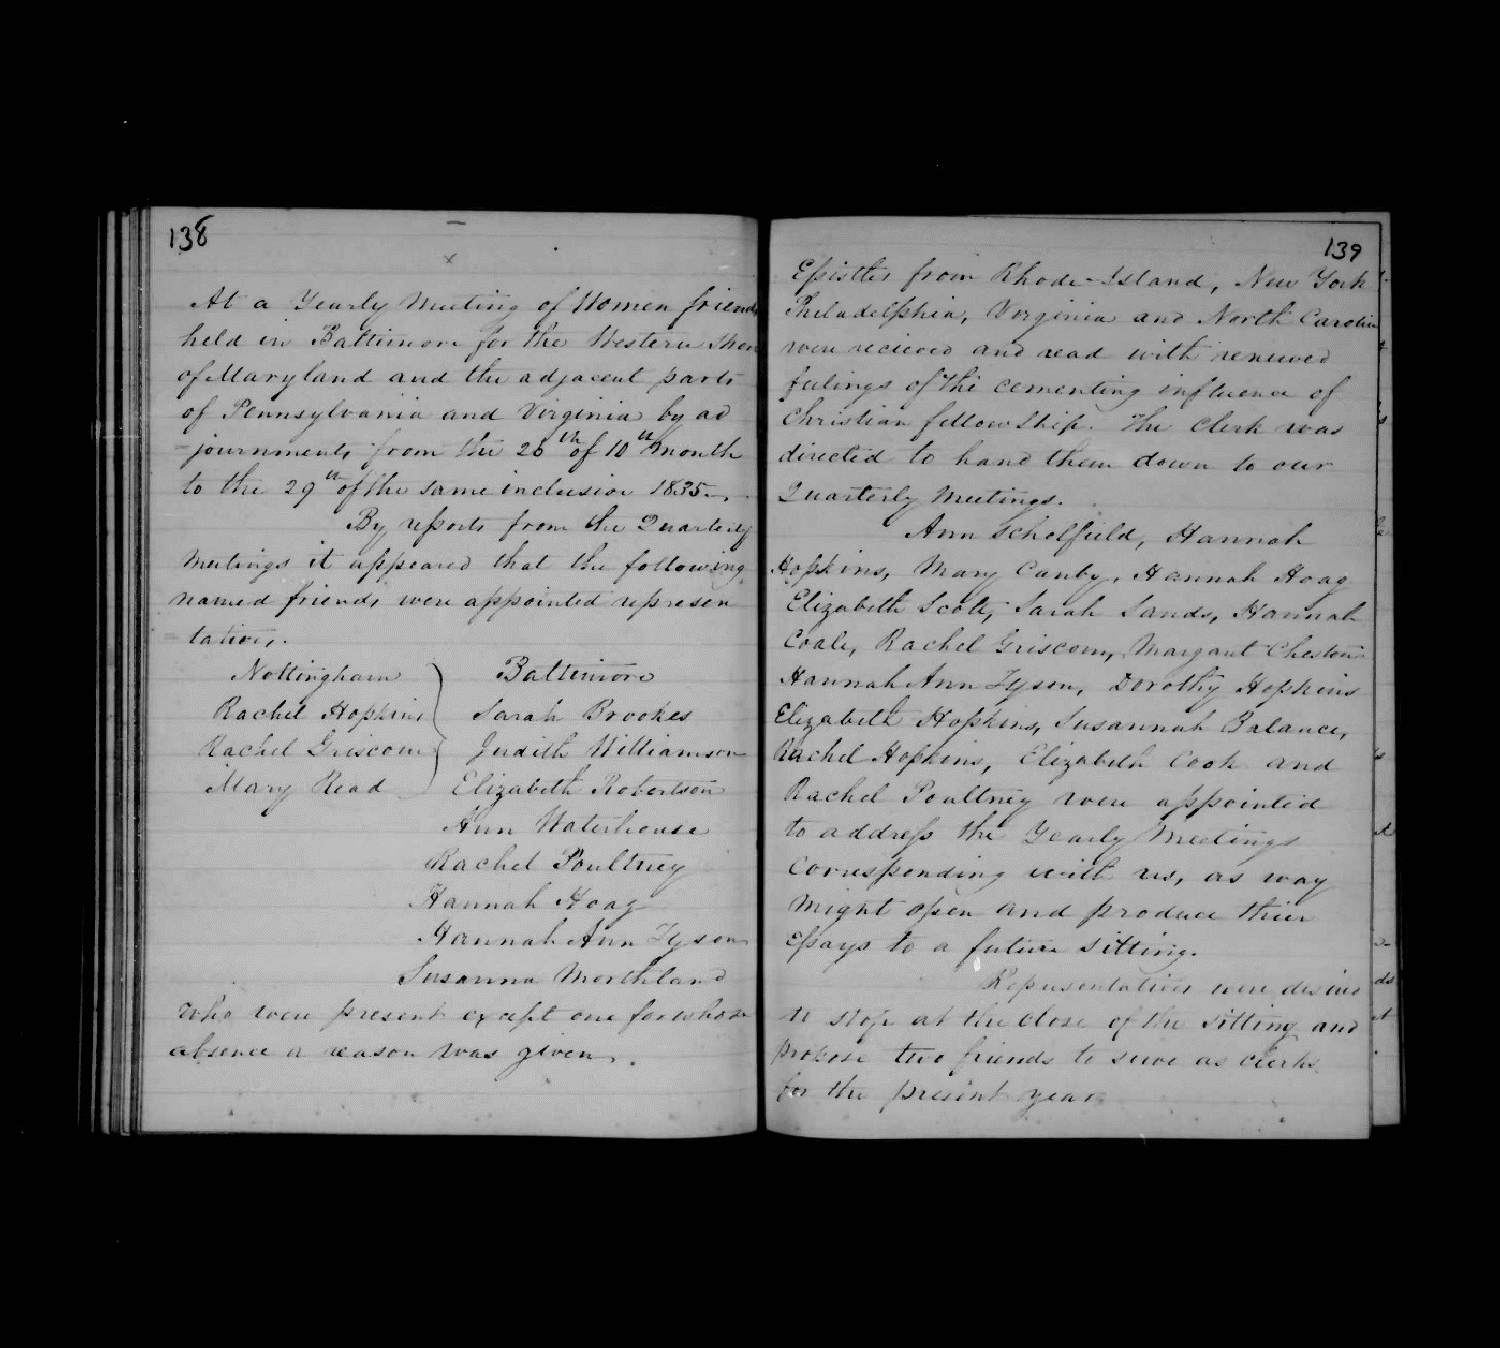 138
At a Yearly Meeting of Women friends
held in Baltimore for the Western Shore
of Maryland and the adjacent parts
of Pennsylvania and Virginia by ad
-journments from the 26th of 10th month
to the 29th of the same inclusive 1835.
By reports from the Quarterly
Meetings it appeared that the following
named friends were appointed represen
tatives.
Nottingham
Rachel Hopkins
Rachel Griscom
Mary Read
Baltimore
Sarah Brookes
Judith Williamson
Elizabeth Robertson
Ann Waterhouse
Rachel Poultney
Hannah Hoag
Hannah Ann Tyson
Susanna Morthland
Who were present except one for whose
absence a reason was given.
139
Epistles from Rhode-Island, New York
Philadelphia, Virginia and North Carolin
were recieved and read with renewed
feelings of the cementing influence of
Christian fellowship. The Clerk was
directed to hand them down to our
Quarterly Meetings.
Ann Scholfield, Hannah
Hopkins, Mary Canby, Hannah Hoag
Elizabeth Scott, Sarah Sands, Hannah
Coale, Rachel Griscom, Margaret Cheston
Hannah Ann Tyson, Dorothy Hopkins
Elizabeth Hopkins, Susannah Balance,
Rachel Hopkins, Elizabeth Cook and
Rachel Poultney were appointed
to address the Yearly Meetings
Corresponding with us, as way
Might open and produce their
Essays to a future sitting.
Representatives were desired
to stop at the close of the sitting and
propose two friends to serve as clerks
for the present year